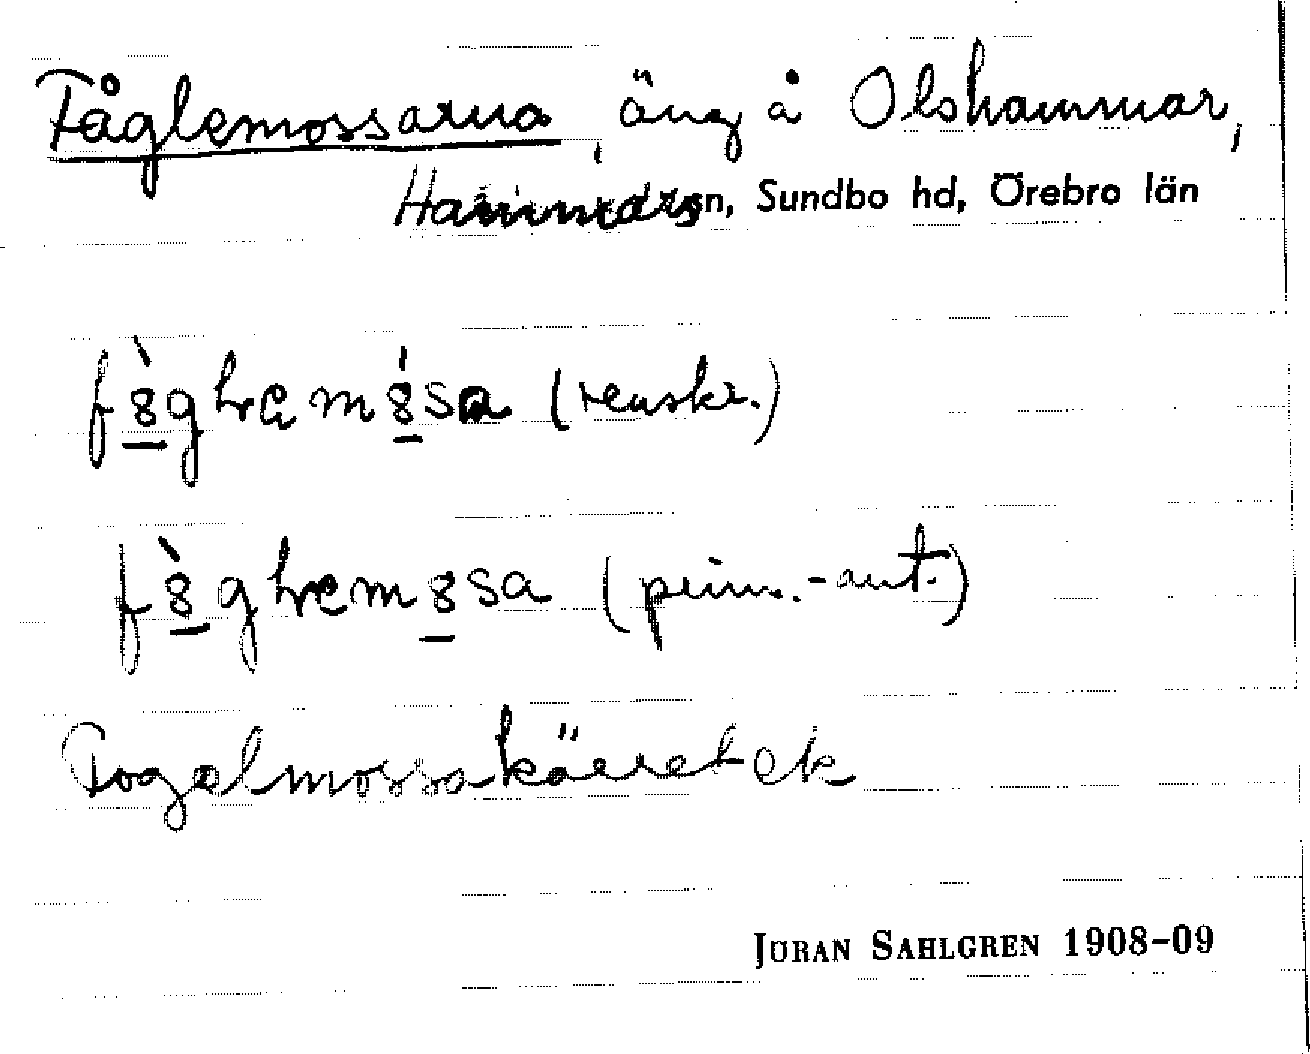 Fåglemossarna, äng å Olshammar,
Hammars sn, Sundbo hd, Örebro län
f8̀ghremósa (renskr.)
f8̀ghrem8sa (prim.-ant.)
Fogelmossakärret ek
JÖRAN SAHLGREN 1908-09